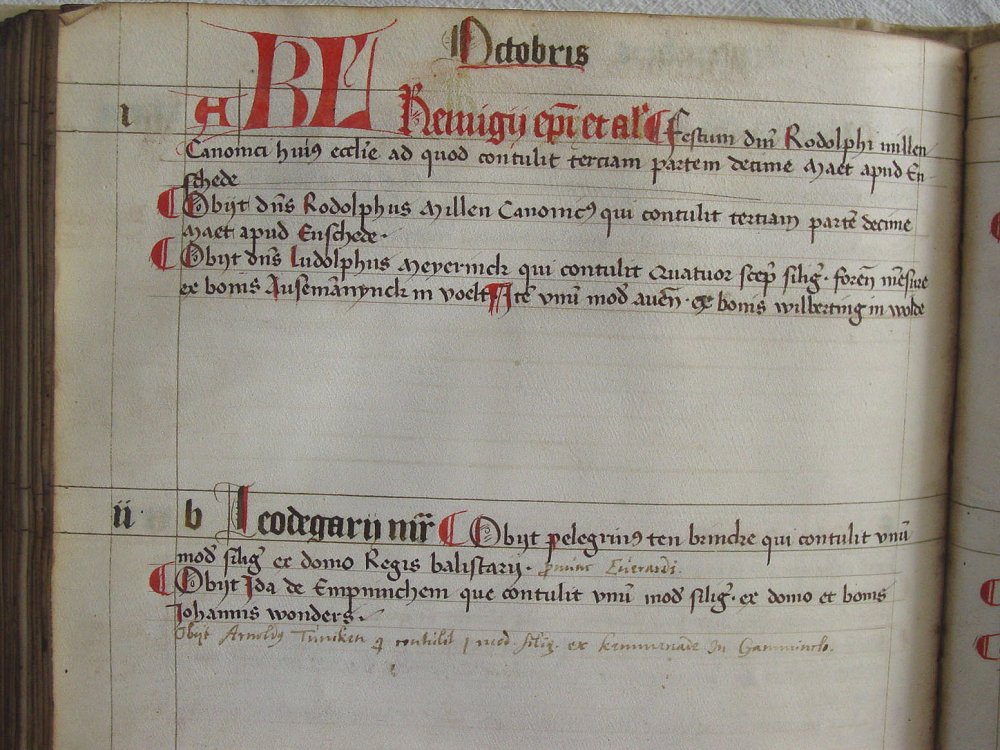 Octobris
i A KL Remigij ep̄i et al' Festum dn̄i Rodolphi millen
Canonici huiꝰ ecclīe ad quod contulit terciam partem decime Maet apud En
schede
Obijt dn̄s Rodolphus Millen Canonicꝰ qui contulit tertiam partē decime
Maet apud Enschede.
Obijt dn̄s Ludolphus Meyerinck qui contulit Quatuor scep̄ siliḡ. foren̄ mēsure
ex bonis Ausemānynck in voelt Itē vnū mod̄ auen̄. ex bonis wilberting in wolde
ii b Leodegarij mr̄ Obijt pelegrinꝰ ten brincke qui contulit vnū
mod̄ siliḡ ex domo Regis balistarij. Euerardi.
Obijt Ida de Empninchem que contulit vnū mod̄ siliḡ. ex domo et bonis
Johannis wonders.
Obijt Arnoldꝰ Tuneken q̄ contulit j mod. silig. ex kemenade In Gamminclo.